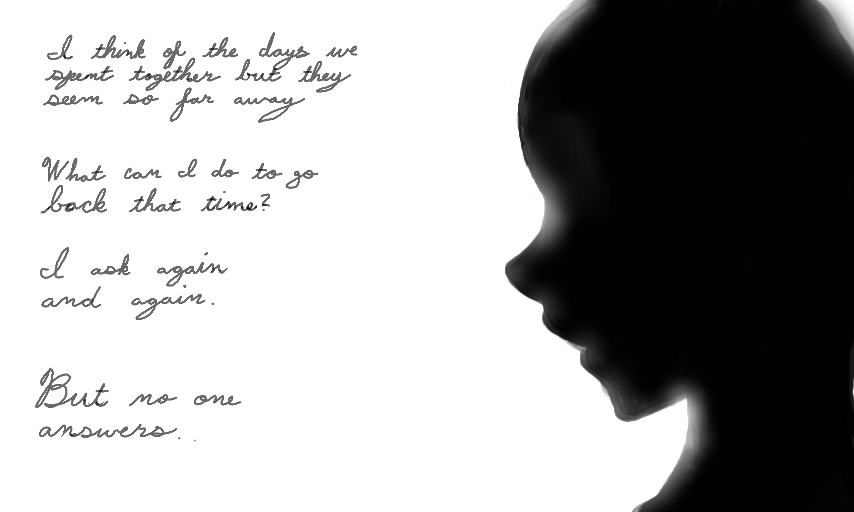 I think of the days we
spent together but they
seem so far away
What can I do to go
back that time?
I ask again
and again.
But no one
answers...